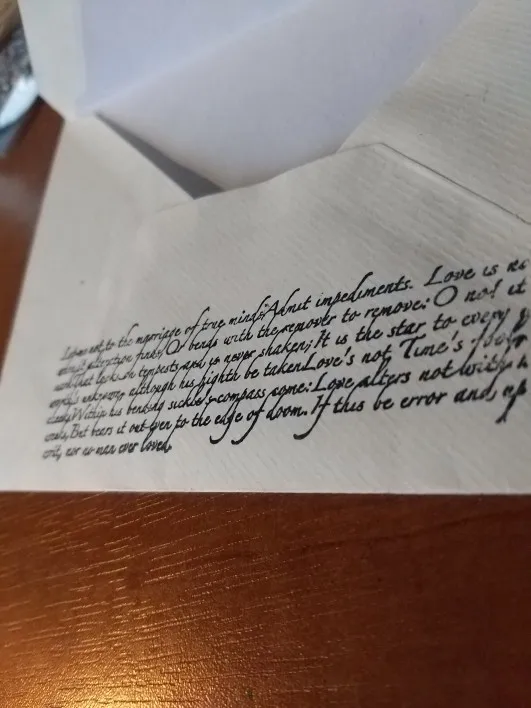 Let me not to the marriage of true minds Admit impediments. Love is no
alteration finds, Or bends with the remover to remove: O no! it
that looks on tempests and is never shaken; It is the star to every
unknown, although his highth be taken. Love's not Time's fool,
Within his bending sickle's compass come: Love alters not with
weeks, But bears it out even to the edge of doom. If this be error and up
writ, nor no man ever loved.